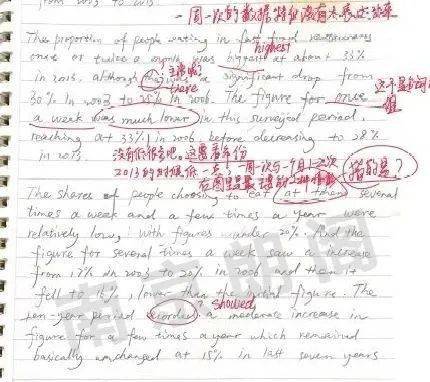 from 2003 to 2013
一周一次的数据特征没有太表达效果
The proportion of people eating in fast food restaurants
highest
once or twice a month was biggest at about 33%
主语呢
in 2013, although was a significant drop from
there
30% in 2003 to 25% in 2006. The figure for once
这不是最低
值
a week was much lower in this surveyed period,
reaching at 33% in 2006 before decreasing to 28%
in 2013
没有低很多吧。这要看年份
2013的时候低一点
一周一次与一月1-2次
指的是?
The shares of people choosing to eat at then several
times a week and a few times a year were
relatively low, with figures under 20%. And the
figure for several times a week saw a increase
from 17% in 2003 to 20% in 2006, and then it
fell to 16%, lower than the figure. The
showed
ten-year period recorded a moderate increase in
figure for a few times a year which remained
basically unchanged at 15% in last seven years
南京朗阁